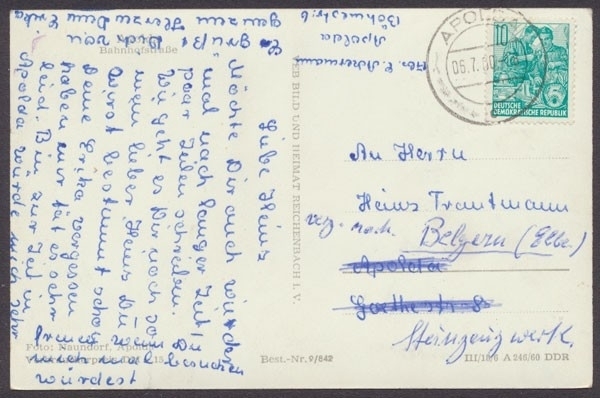 Liebe Heinz
Möchte Dir auch wieder
mal nach langer Zeit
paar Zeilen schreiben.
Wie geht es Dir noch so
mein lieber Heinz Du
wirst bestimmt schon
Deine Erika vergessen
haben mir tät es sehr
leid. Bin zur Zeit in
Apolda würde mich sehr
freuen wenn Du
mich mal besuchen
würdest
Es grüßt Dich
ganzen Herzen Deine Erika
Bahnhofstraße
Apolda
Foto: Naundorf, Apolda
Best.-Nr. 9/842
BILD UND HEIMAT REICHENBACH I. V.
III/18/6 A 246/60 DDR
APOLDA
10
DEUTSCHE
DEMOKRATISCHE REPUBLIK
An Herrn
Heinz Trautmann
verz. nach. Belgern (Elbe)
Apolda
Goethestr.
Steinzeugwerk.